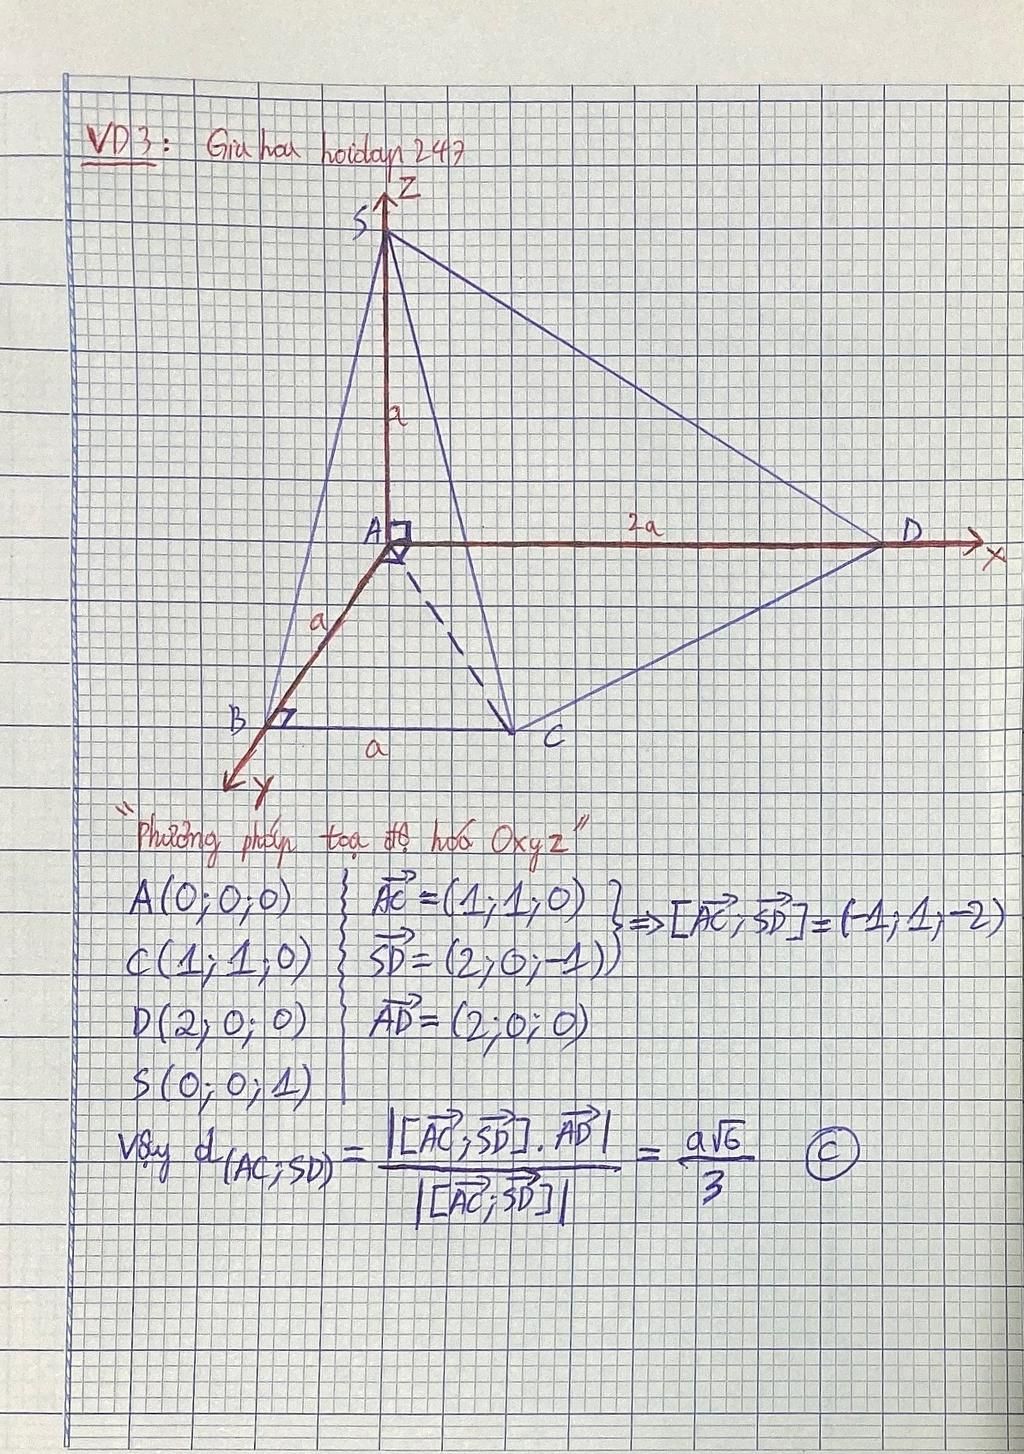 VD3: Gia hoa hoidap 247
Z
S
a
A
2a
D
X
a
B
C
a
Y
"Phương pháp toạ độ hoá Oxyz"
A(0;0;0)
C(1;1;0)
D(2;0;0)
S(0;0;1)
AC = (1;1;0)
SD = (2;0;-1)
AD = (2;0;0)
} => [AC;SD] = (-1;1;-2)
Vậy d(AC;SD) = |[AC;SD].AD| / |[AC;SD]| = a√6 / 3 C